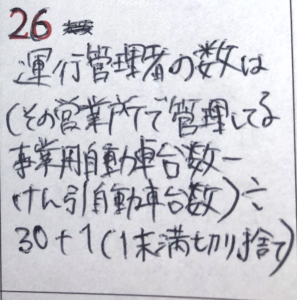 26
運行管理者の数は
(その営業所で管理してる
事業用自動車台数-
けん引自動車台数)÷
30+1(1未満切り捨て)